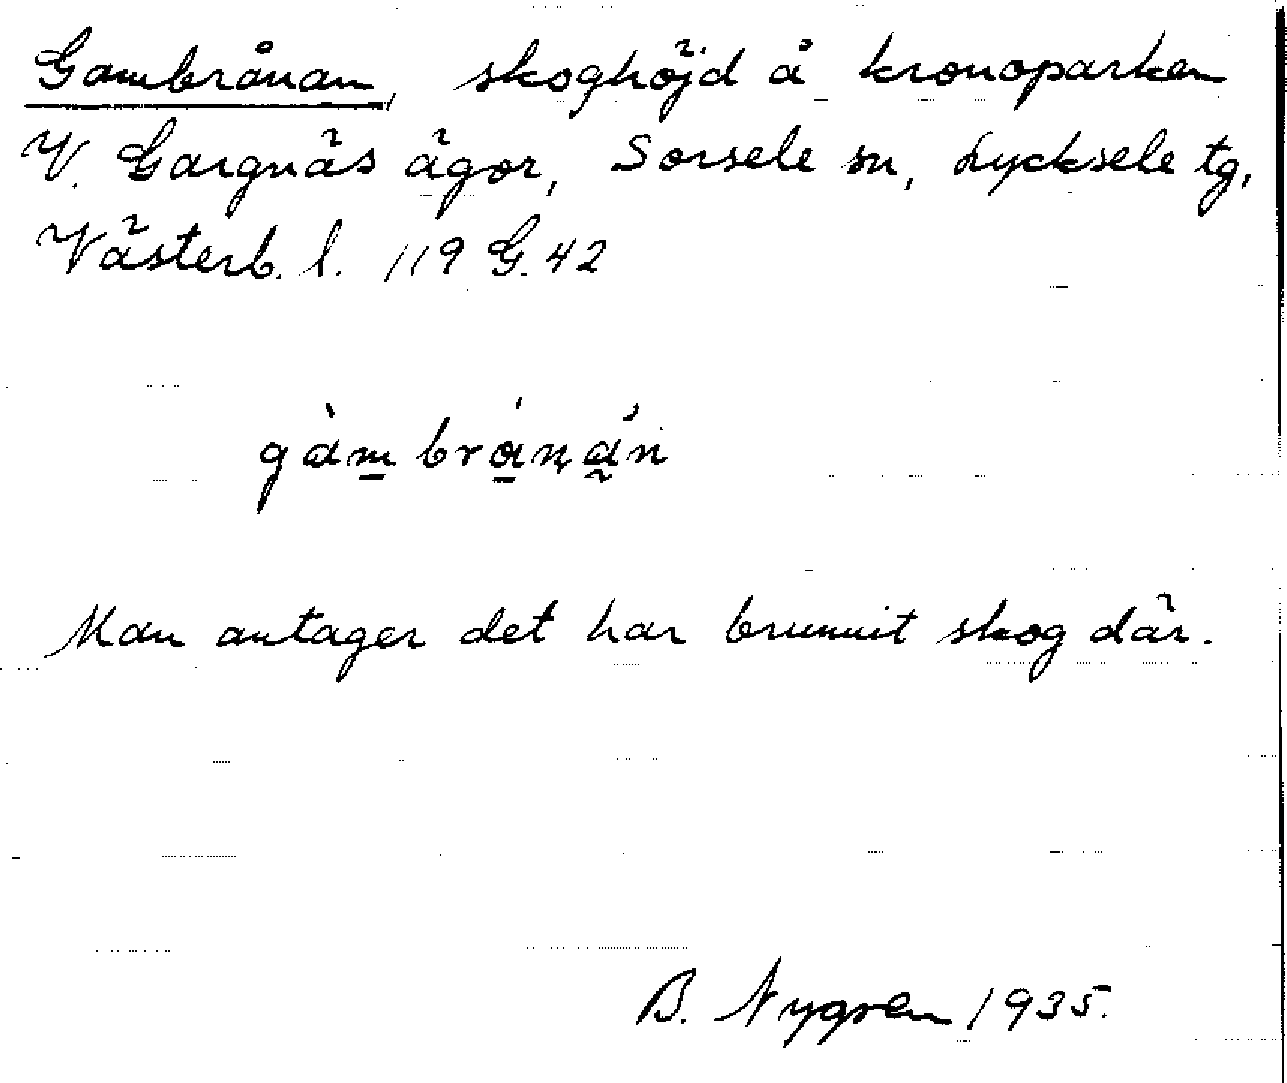 Gambrånan, skoghöjd å kronoparken
V. Gargnäs ägor, Sorsele sn, Lycksele tg,
Västerb. l. 119 G. 42
Man antager det har brunnit skog där.
B. Nygren 1935.